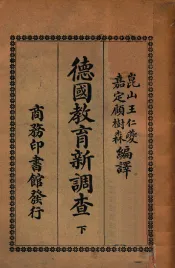 崑山王仁夔
嘉定顧樹森
編譯
德國教育新調查
下
商務印書館發行